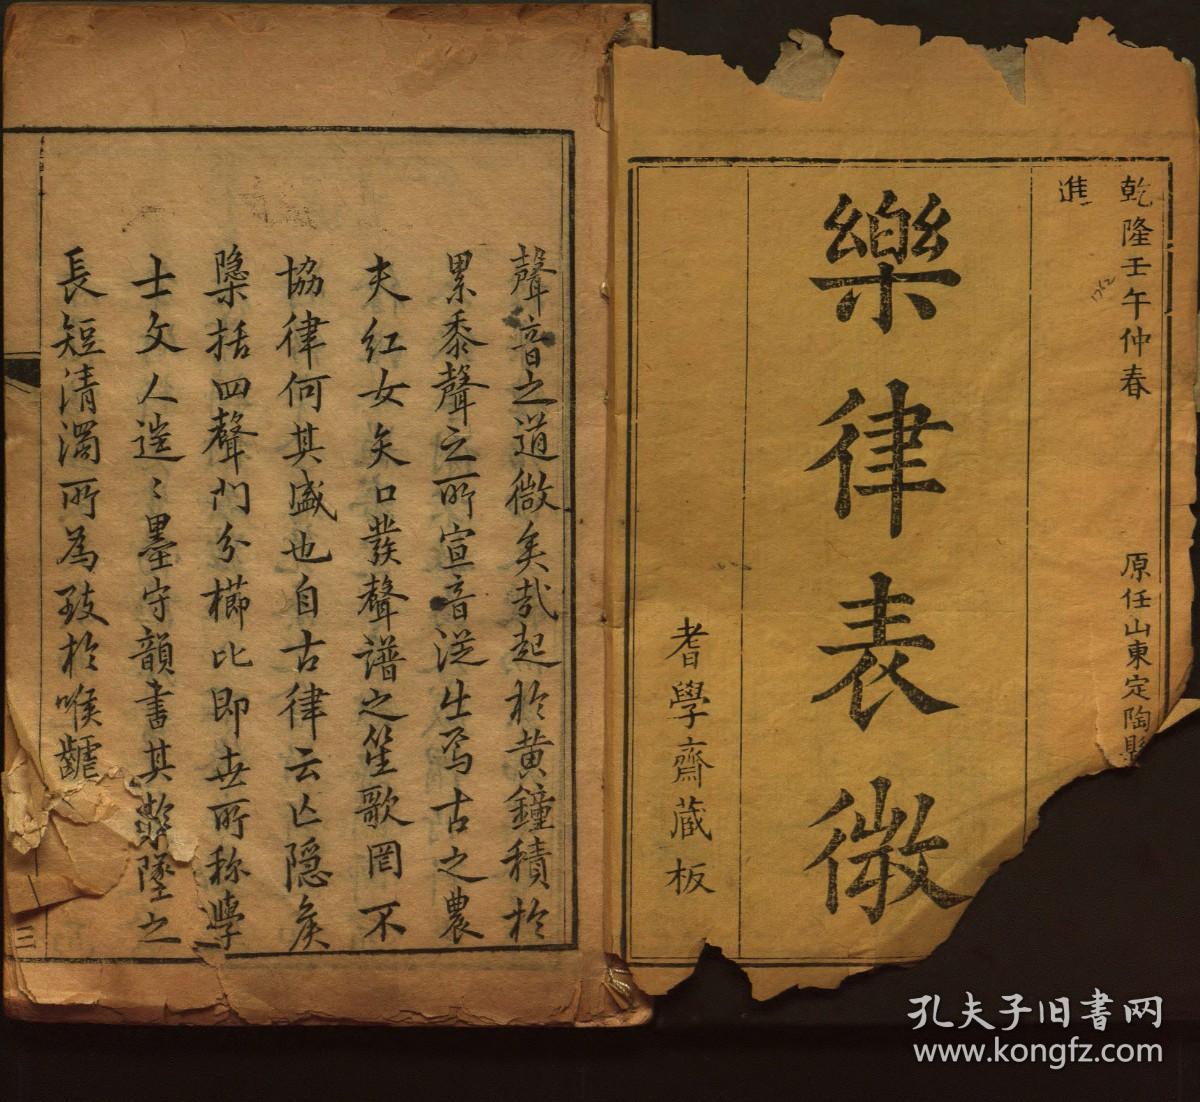 乾隆壬午仲春
1762
原任山東定陶縣
進
樂律表微
耆學齋藏板
聲音之道微矣哉起於黄鐘積於
累黍聲之所宣音從生焉古之農
夫紅女矢口發聲譜之笙歌罔不
協律何其盛也自古律云亡隱矦
檃括四聲門分櫛比即世所称學
士文人遙〻墨守韻書其於
墜之
長短清濁所為致於喉齶
三
孔夫子旧书网
www.kongfz.com